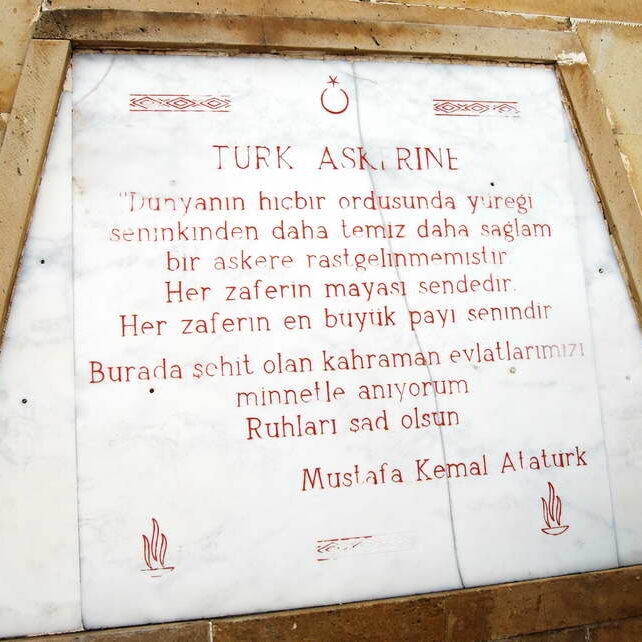 TURK ASKERINE
"Dunyanın hicbir ordusunda yüreği
seninkinden daha temiz daha sağlam
bir askere rastgelinmemistir
Her zaferin mayası sendedir.
Her zaferin en büyük payı senindir
Burada şehit olan kahraman evlatlarımızı
minnetle anıyorum
Ruhları şad olsun
Mustafa Kemal Ataturk